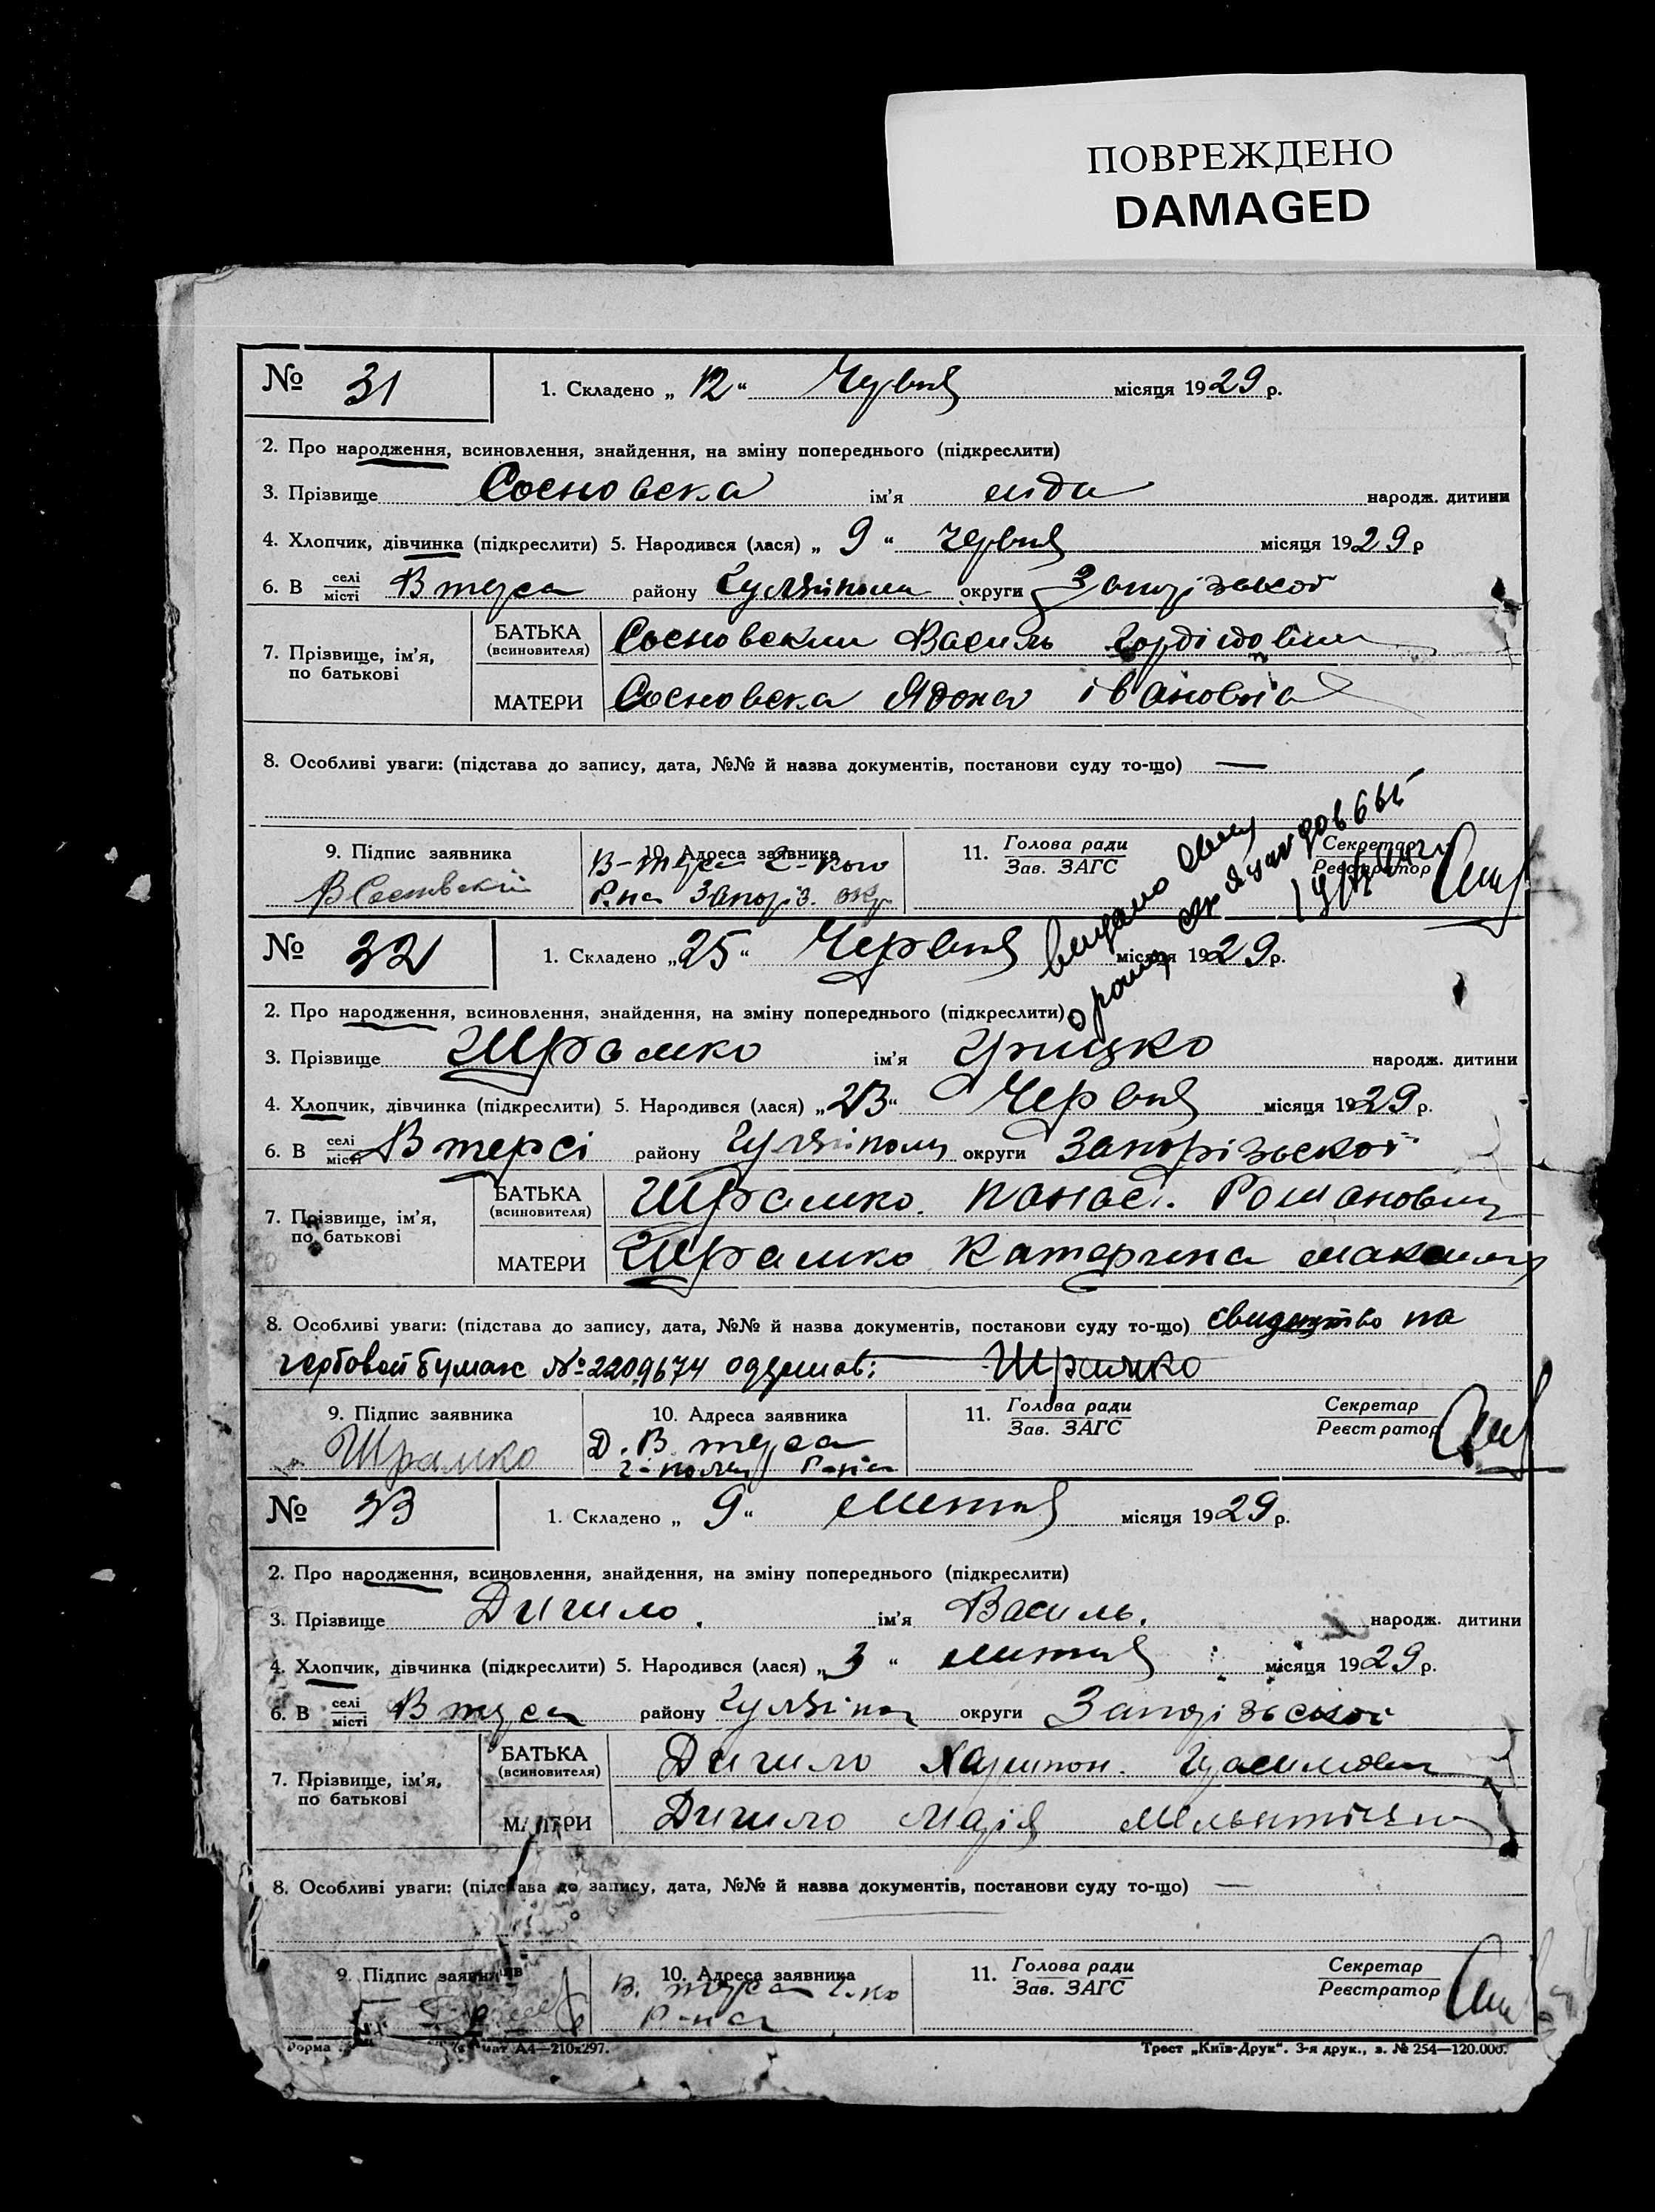 ПОВРЕЖДЕНО
DAMAGED
№ 31
1. Складено „ 12 “ Червня місяця 1929 р.
2. Про народження, всиновлення, знайдення, на зміну попереднього (підкреслити)
3. Прізвище Сосновська ім’я Ліда народж. дитини
4. Хлопчик, дівчинка (підкреслити) 5. Народився (лася) „ 9 “ Червня місяця 1929 р
6. В селі/місті В терса району Гуляйполя округи Запорізської
7. Прізвище, ім’я, по батькові
БАТЬКА (всиновителя) Сосновский Василь
МАТЕРИ Сосновска Ядоха івановна
8. Особливі уваги: (підстава до запису, дата, №№ й назва документів, постанови суду то-що) —
9. Підпис заявника
10. Адреса заявника
В-терса Г-кого
Р-на Запоріз. окр
11. Голова ради
Зав. ЗАГС
Секретар
Реєстратор
№ 32
1. Складено „25“ Червня місяця 1929 р.
2. Про народження, всиновлення, знайдення, на зміну попереднього (підкреслити)
3. Прізвище Шрамко ім’я Грицко народж. дитини
4. Хлопчик, дівчинка (підкреслити) 5. Народився (лася) „23“ Червня місяця 1929 р.
6. В селі/місті В терсі району Гуляіполя округи Запорізьской
7. Прізвище, ім’я, по батькові
БАТЬКА (всиновителя) Шрамко. Панас. Романович
МАТЕРИ Шрамко Катерина
8. Особливі уваги: (підстава до запису, дата, №№ й назва документів, постанови суду то-що) свидецтво на
гербовой бумаж №2209674 одержав: Шрамко
9. Підпис заявника
Шрамко
10. Адреса заявника
Д. В терса
Г-поля Рана
11. Голова ради
Зав. ЗАГС
Секретар
Реєстратор
№ 33
1. Складено „ 9 “ Липня місяця 1929 р.
2. Про народження, всиновлення, знайдення, на зміну попереднього (підкреслити)
3. Прізвище Дигило. ім’я Василь. народж. дитини
4. Хлопчик, дівчинка (підкреслити) 5. Народився (лася) „ 3 “ Липня місяця 1929 р.
6. В селі/місті В терса району Гуляіпол округи Запорізьской
7. Прізвище, ім’я, по батькові
БАТЬКА (всиновителя) Дигило Харитон.
МАТЕРИ Дигило Марія
8. Особливі уваги: (підстава до запису, дата, №№ й назва документів, постанови суду то-що) —
9. Підпис заявника
10. Адреса заявника
В. терса Г-ко
Р-на
11. Голова ради
Зав. ЗАГС
Секретар
Реєстратор
Форма А4—210х297.
Трест „Київ-Друк“. 3-я друк., з. № 254—120.000.